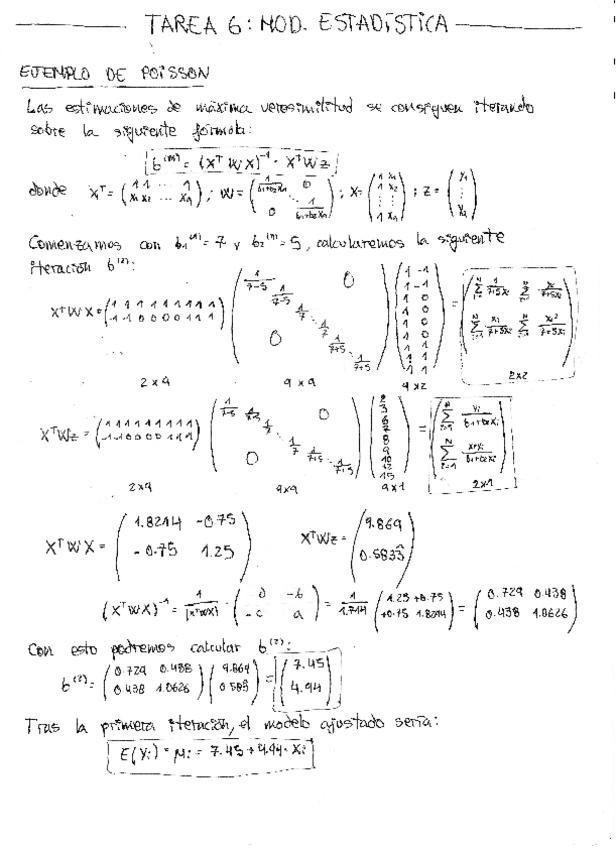 TAREA 6: MOD. ESTADÍSTICA
EJEMPLO DE POISSON
Las estimaciones de máxima verosimilitud se consiguen iterando
sobre la siguiente fórmula:
b^(m) = (X^T W X)^-1 · X^T W z
donde X^T = (1 1 ... 1 / x1 x2 ... x9); W = (1/(b1+b2x1) 0 / 0 1/(b1+b2x9)); X = (1 x1 / 1 x2 / ⋮ / 1 x9); z = (y1 / ⋮ / y9)
Comenzamos con b1^(1) = 7 y b2^(1) = 5, calcularemos la siguiente
iteración b^(2):
X^T W X = (1 1 1 1 1 1 1 1 1 / -1 -1 0 0 0 0 1 1 1) (1/(7-5) 1/(7-5) 1/7 ... 1/7 1/(7+5) 0 0) (1 -1 / 1 -1 / 1 0 / 1 0 / 1 0 / 1 0 / 1 1 / 1 1 / 1 1) =
2x9 9x9 9x2 2x2
X^T W z = (1 1 1 1 1 1 1 1 1 / -1 -1 0 0 0 0 1 1 1) (1/(7-5) 1/7 1/7 1/(7+5) 1/(7+5) 0 0) (2 / 3 / 6 / 7 / 8 / 9 / 10 / 12 / 15) = (∑ yi/(b1+b2xi) / ∑ xiyi/(b1+b2xi))
2x9 9x9 9x1 2x1
X^T W X = (1.8214 -0.75 / -0.75 1.25) X^T W z = (9.869 / 0.5833)
(X^T W X)^-1 = 1/|X^T W X| · (d -b / -c a) = 1/1.714 (1.25 +0.75 / +0.75 1.8214) = (0.729 0.438 / 0.438 1.0626)
Con esto podremos calcular b^(2):
b^(2) = (0.729 0.438 / 0.438 1.0626) (9.869 / 0.583) = (7.45 / 4.94)
Tras la primera iteración, el modelo ajustado sería:
E(Yi) = μi = 7.45 + 4.94 · xi